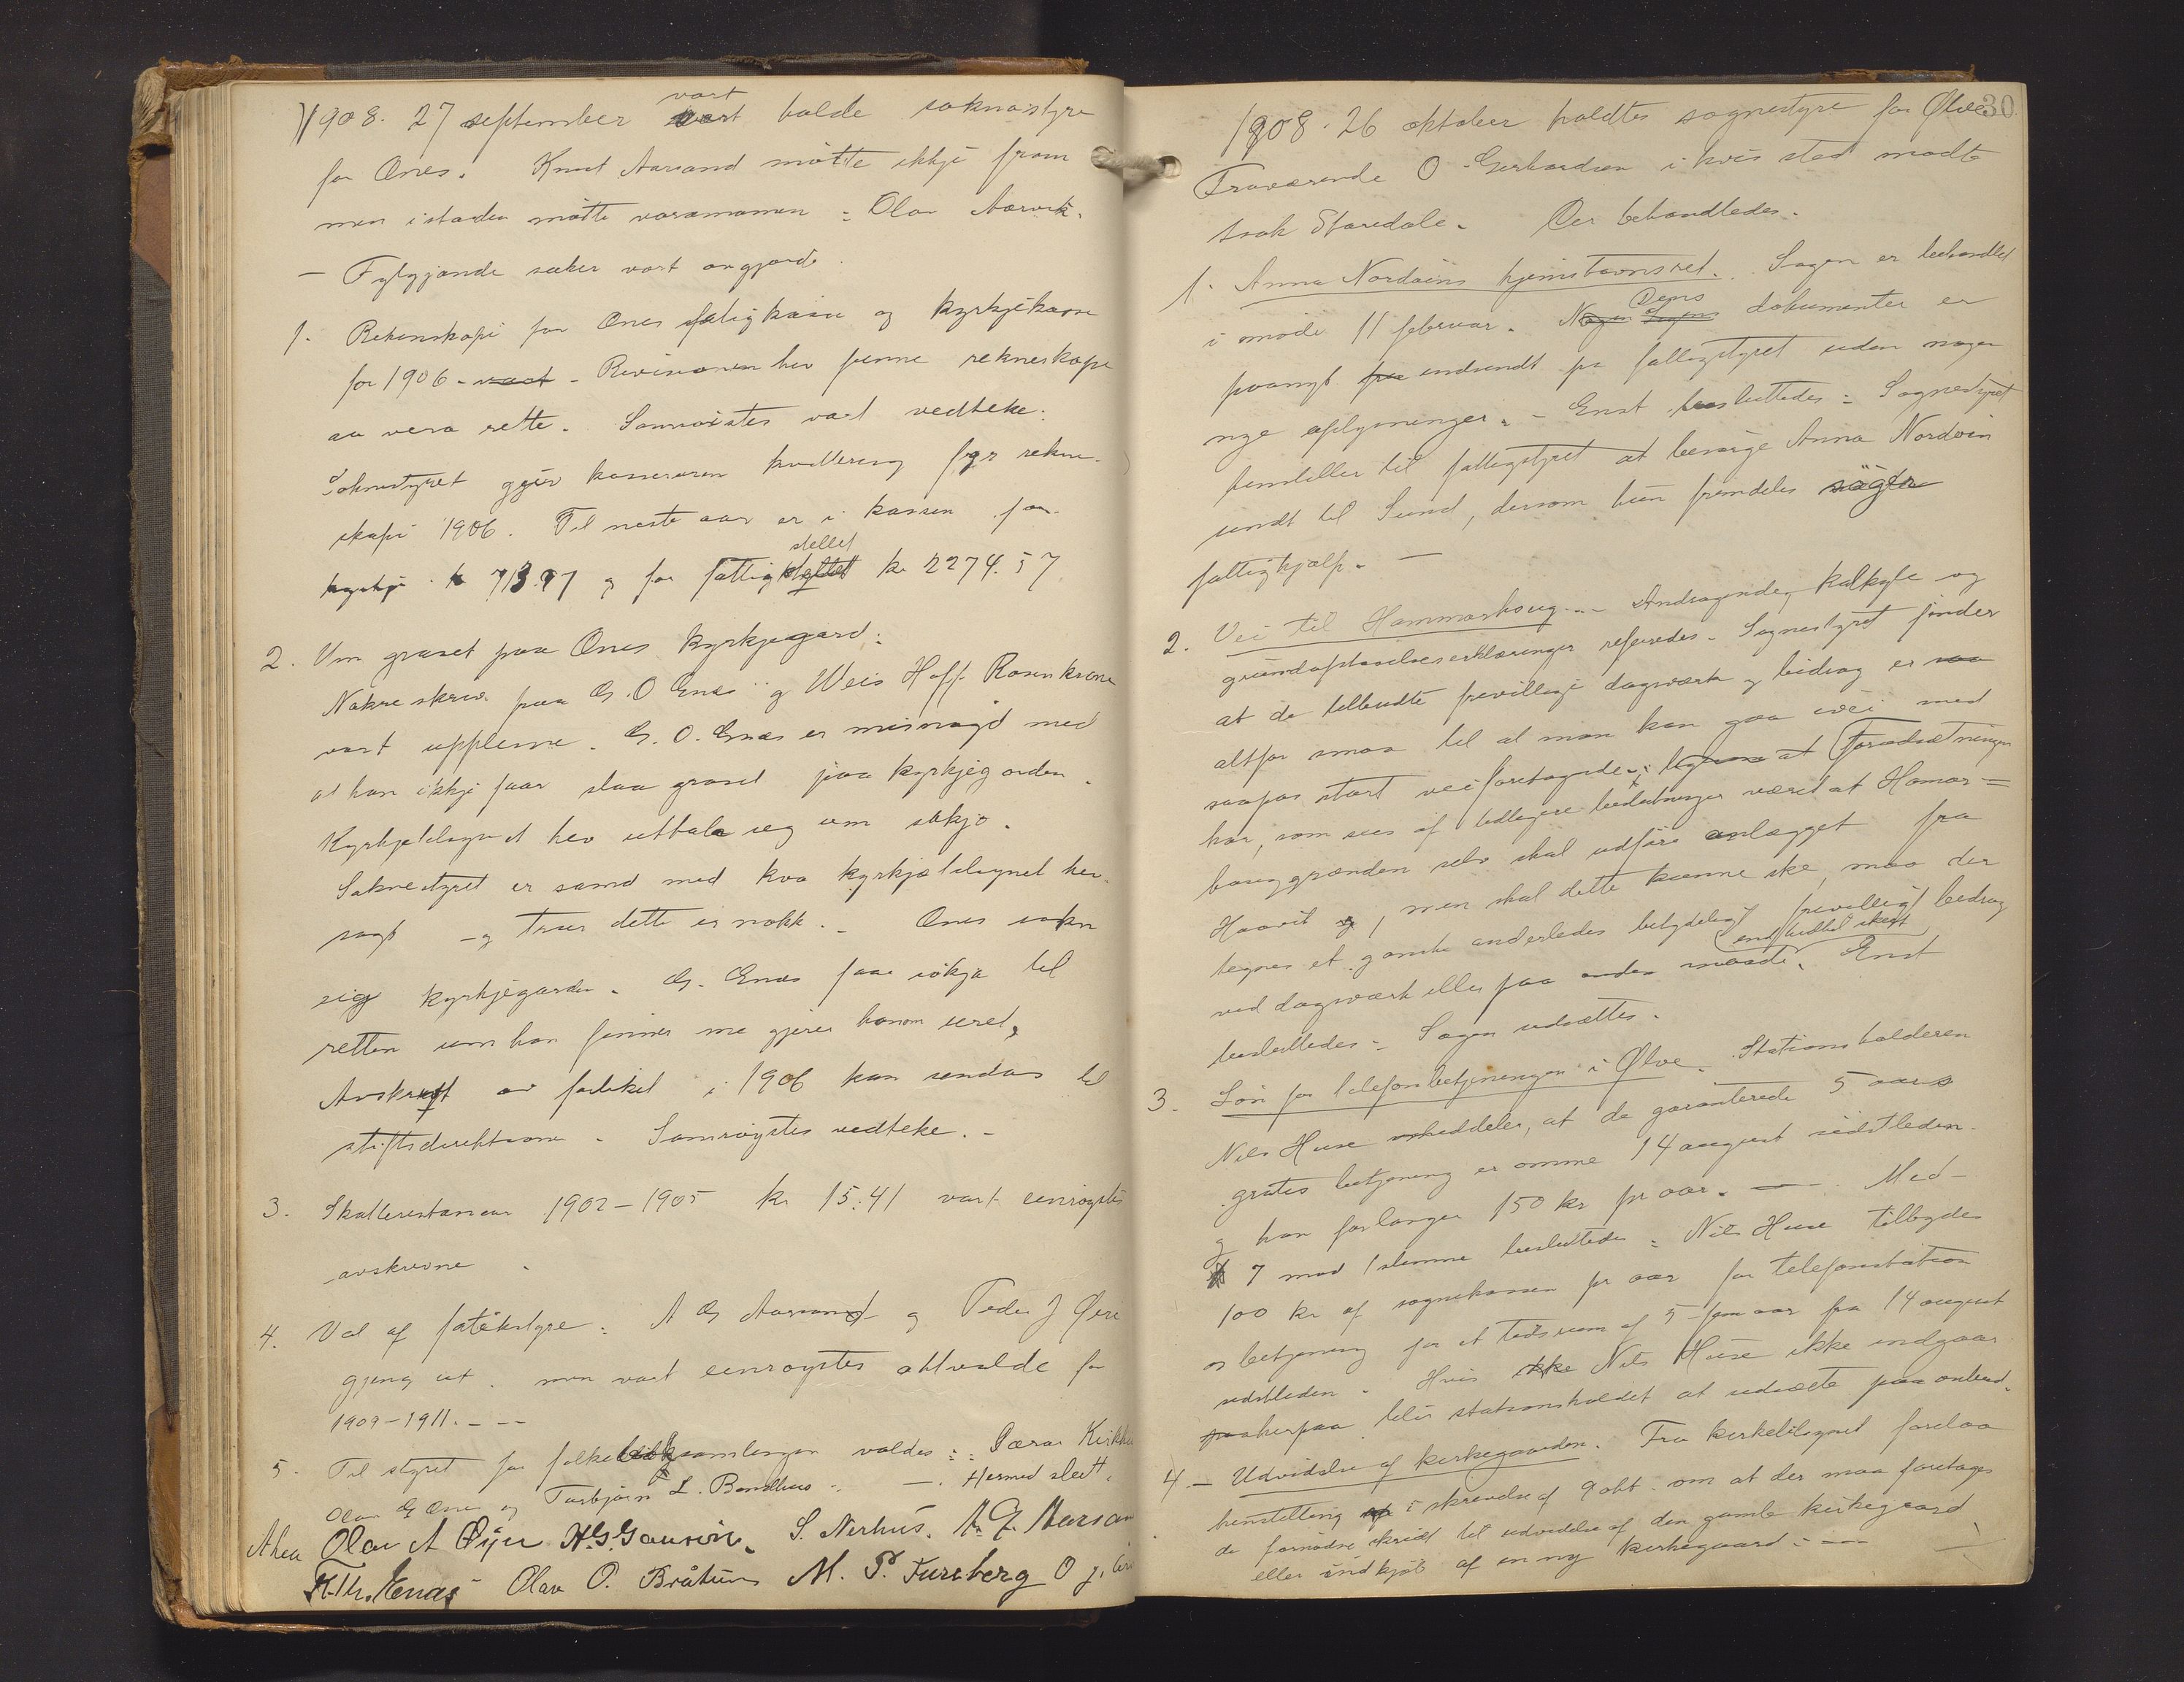 1908. 27 september vart halde soknastyre
for Ænes. Knut Aarsand møtte ikkje fram
men istaden møtte varamannen: Olav Aarvik.
— Fylgjande saker vart avgjorde.
1. Rekenskapi for Ænes fatigkasse og kyrkjekasse
for 1906 - vart - Revisoren hev funne rekneskape
aa vera rette. Samrøistes vart vedteke:
Soknestyret gjev kasseraren kvittering fyr rekne-
skapi 1906. Til neste aar er i kassen for
kyrkje kr 713.97 og for fattigstyret stellet kr 2274.57
2. Um graset paa Ænes kyrkjegard:
Nokre skriv paa G. O Enæs og Weis Hoff Rosenkrone
vart upplesne. G. O. Enæs er misnøgd med
at han ikkje faar slaa graset paa kyrkjegarden.
Kyrkjetilsynet hev uttala seg um sakjo.
Soknestyret er samd med kva kyrkjetilsynet hev
sagt - og trur dette er nokk. - Ænes sokn
eig kyrkjegarden. G. Enæs faar søkja til
retten um han finner me gjerer honom uret.
Avskrift av forliket i 1906 kan sendas til
stiftsdirektionen. Samrøystes vedteke. -
3. Skatterestansar 1902-1905 kr 15.41 vart einrøystes
avskrivne.
4. Val af fatikstyre: A G Aarsand og Peder J Øie
gjeng ut. men vart einrøystes attvalde for
1909-1911. - - -
5. Til styret for folkeboksamlingen valdes: Lærar Kirkhus
Olav G Ænes og Torbjørn L. Bondhus. — . Hermed slutt.
Olav A Øijen N. G. Gausvik. S. Nerhus. A. G. Aarsan
H. Th. Enæs Olav O. Bråtun M. P. Fureberg O J.
30
1908. 26 oktober holdtes sognestyre for Ølve
Fraværende O Gerhardsen i hvis sted mødte
Isak Staredale. Der behandledes.
1. Anna Nordvins hjemstavnsret. Sagen er behandlet
i møde 11 februar. Nogen Sagens Dens dokumenter er
paanyt fra indsendt fra fattigstyret uden nogen
nye oplysninger. - Enst. besluttedes: Sognestyret
henstiller til fattigstyret at besørge Anna Nordvin
sendt til Sund, dersom hun fremdeles søger
fattighjælp. —
2. Vei til Hammarhaug. - Andragende, kalkyle og
grundafstaaelseserklæringer refereredes - Sognestyret finder
at de tilbudte frivillige dagsværk og bidrag er saa
altfor smaa til at man kan gaa ivei med
saapas stort veiforetagende, at Forudsætningen
har, som sees af tidligere beslutninger været at Hamar=
hauggrænden selv skal udføre anlægget fra
Haavik og, men skal dette kunne ske, maa der
tegnes et ganske anderledes betydeligt frivilligt bidrag
ved dagsværk eller paa anden maade, end hidtil skeet Enst
besluttedes: Sagen udsættes.
3. Løn for telefonbetjeningen i Ølve. Stationsholderen
Nils Huse meddeler, at de garanterede 5 aars
gratis betjening er omme 14 august sidstleden
og han forlanger 150 kr pr aar. — Med
7 mod 1 stemme besluttedes: Nils Huse tilbydes
100 kr af sognekassen pr aar for telefonstation
og betjening for et tidsrum af 5 fem aar fra 14 august
sidstleden. Hvis ikke Nils Huse ikke indgaar
herpaa blir stationsholdet at udsætte paa anbud.
4 - Udvidelse af kirkegaarden. Fra kirketilsynet forelaa
henstilling i skrivelse af 9 okt. om at der maa foretages
de fornødne skridt til udvidelse af den gamle kirkegaard
eller indkjøb af en ny kirkegaard: —